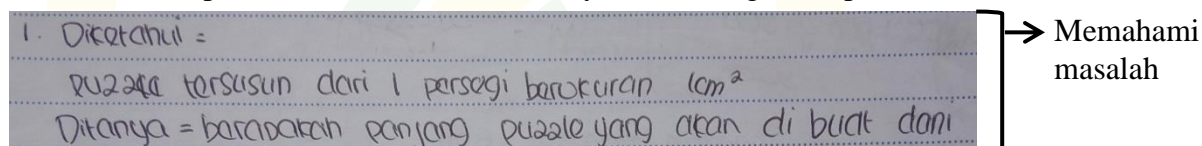 1. Diketahui =
puzzle tersusun dari 1 persegi berukuran 1cm²
Ditanya = berapakah panjang puzzle yang akan di buat dani
Memahami
masalah